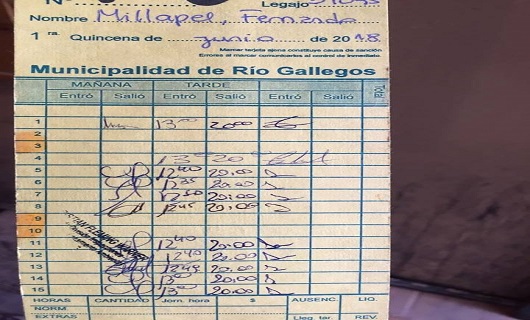 Nº Legajo
Nombre Millapel, Fernando
1 ra. Quincena de junio de 2018
Marcar tarjeta ajena constituye causa de sanción
Errores al marcar comunicarlos al control de inmediato.
Municipalidad de Río Gallegos
MAÑANA TARDE
Entró Salió Entró Salió Entró Salió
1 13 00 20:00
2
3
4 13 00 20
5 12 40 20:00
6 20:00
7 20:00
8 12 45 20:00
9
10
11 12 40 20:00
12 12 40 20:00
13 12 45 20:00
14 13 00 20:00
15 13 00 20:00
HORAS CANTIDAD Jorn. hora $ AUSENC. LIQ.
NORM.
EXTRAS Lleg. tar. REV.